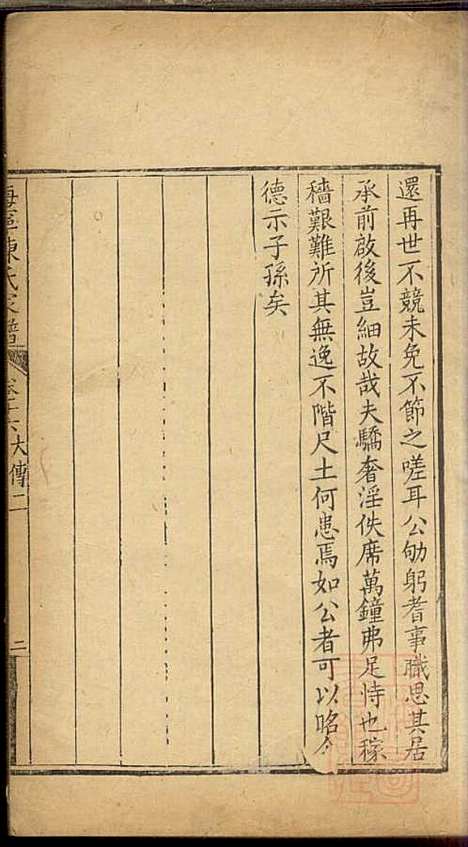 還再世不競未免不節之嗟耳公劬躬耆事職思其居
承前啟後豈細故哉夫驕奢淫佚席萬鐘弗足恃也稼
穡艱難所其無逸不階尺土何患焉如公者可以昭令
德示子孫矣
海寧陳氏家譜
大傳二
二